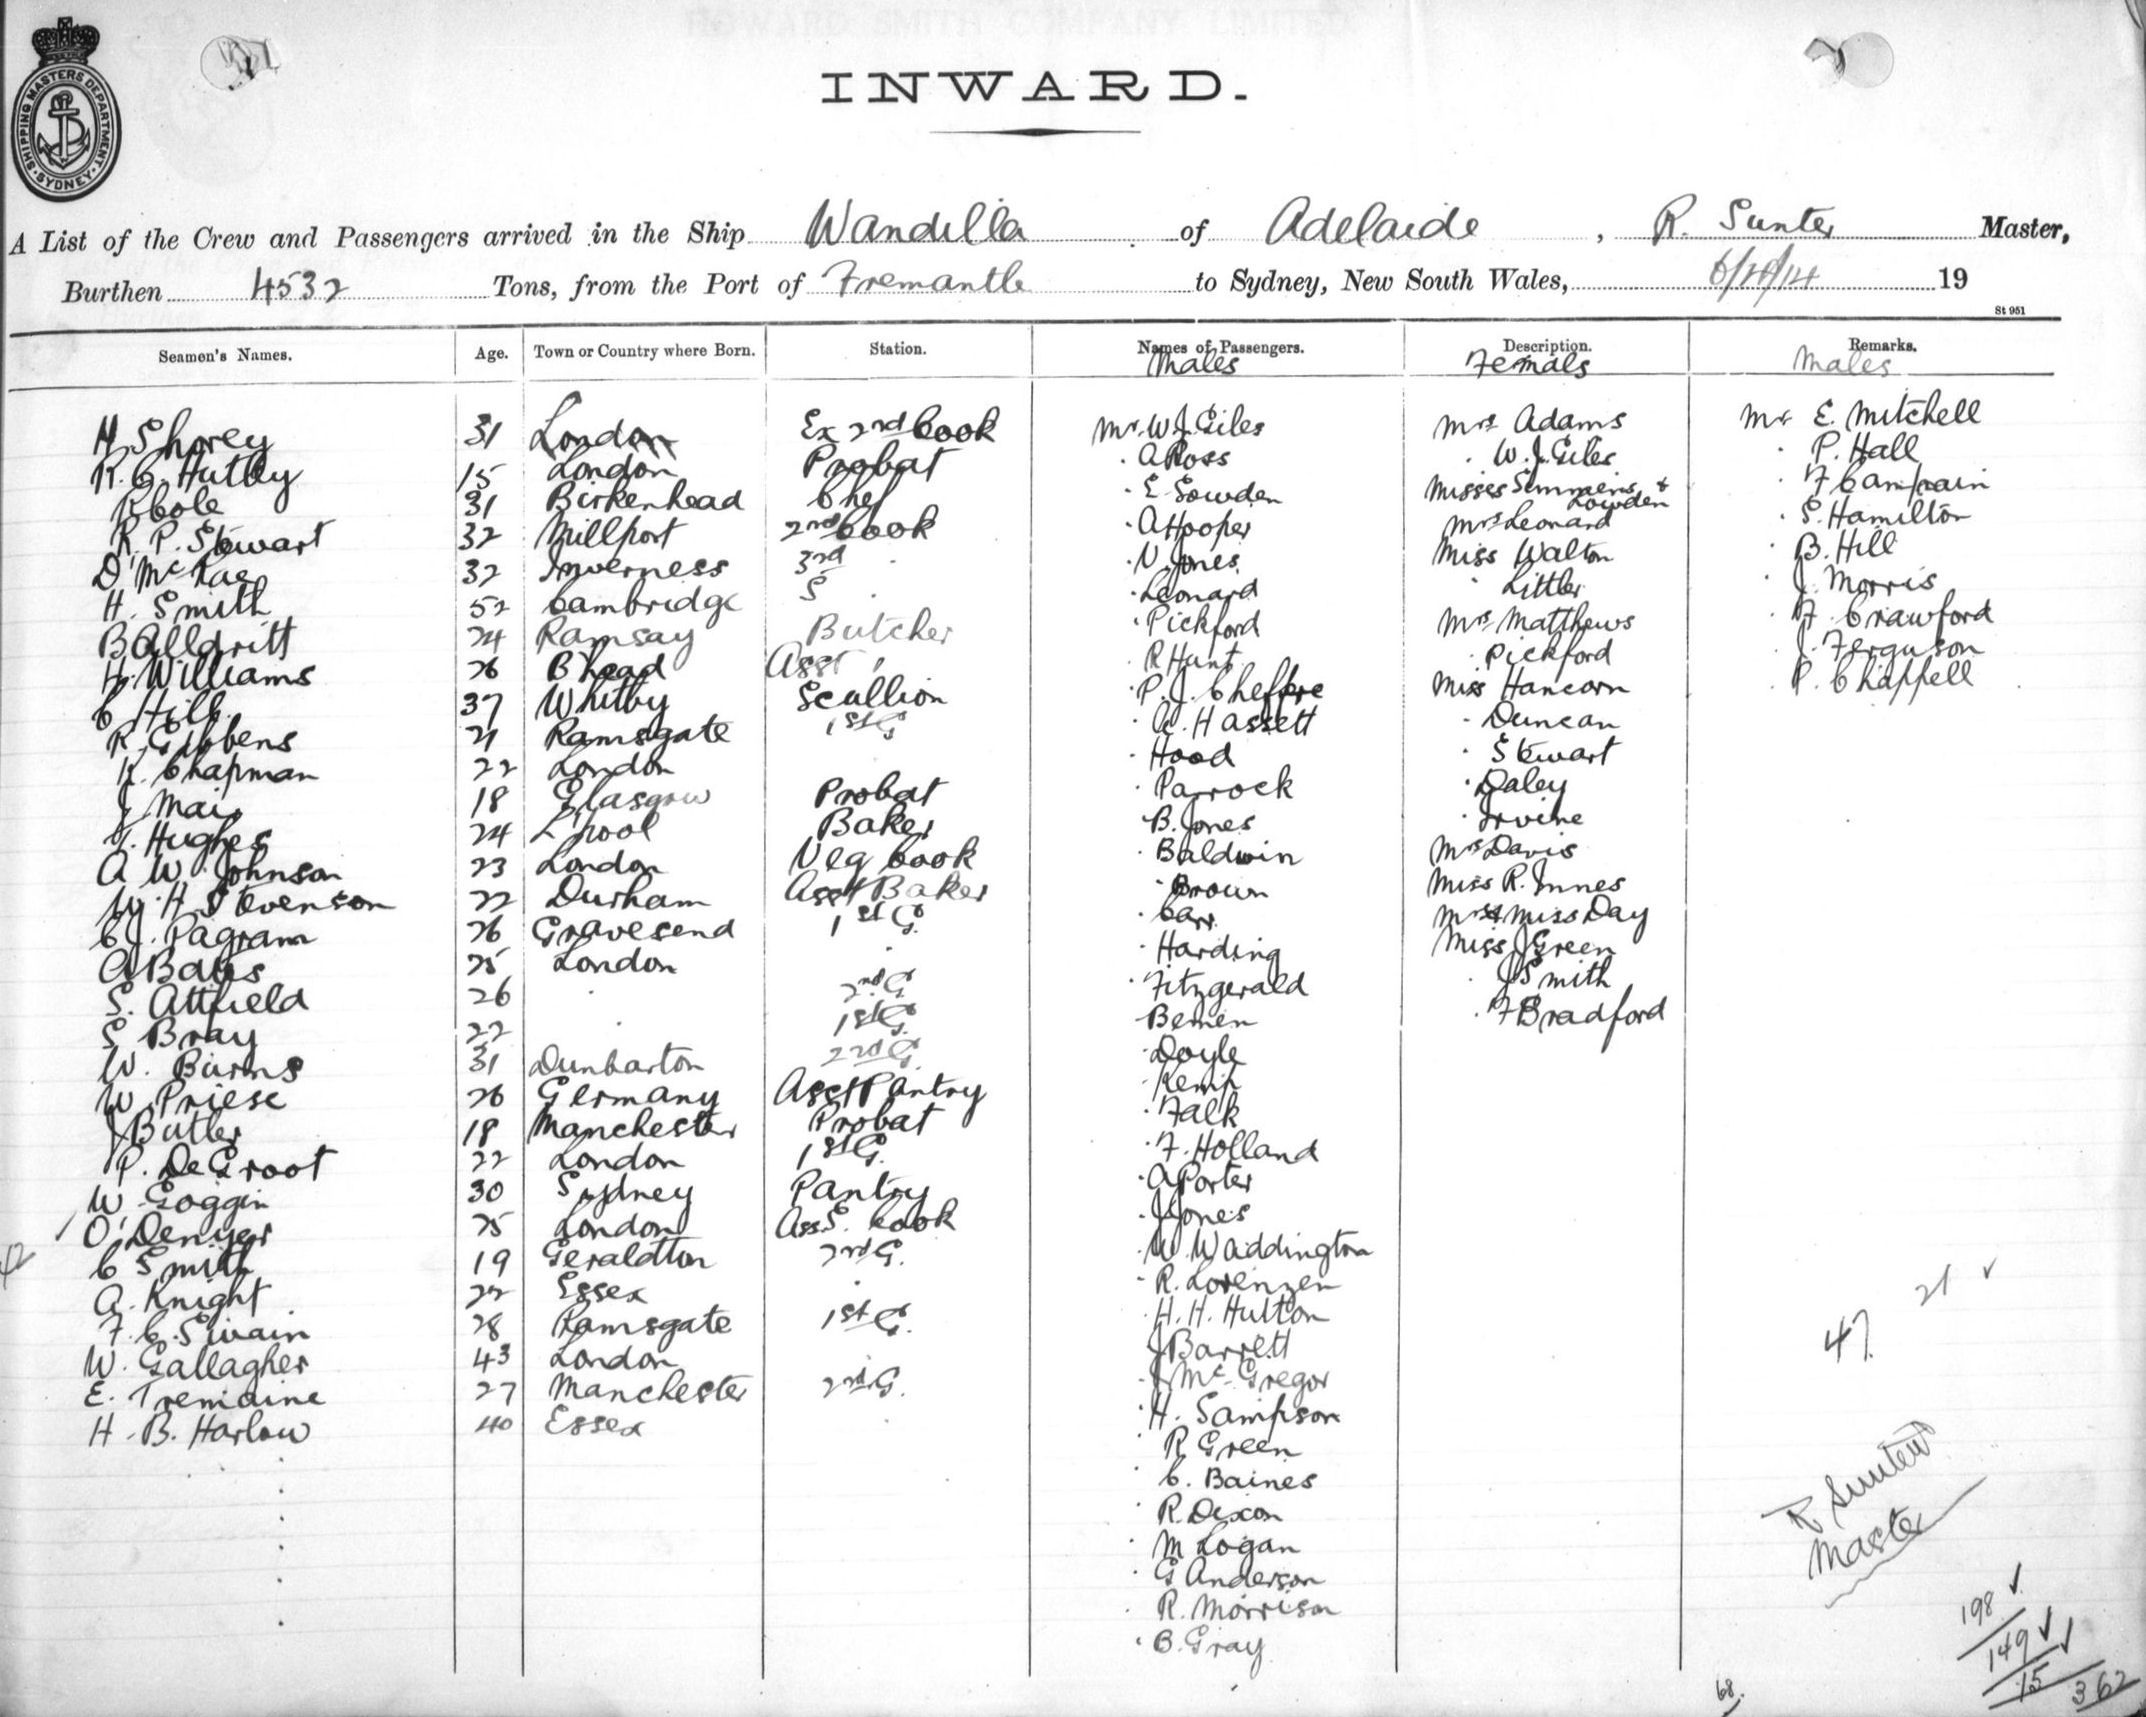 HOWARD SMITH COMPANY LIMITED
SHIPPING MASTERS DEPARTMENT. SYDNEY.
INWARD.
A List of the Crew and Passengers arrived in the Ship Wandilla of Adelaide, R. Sunter Master,
Burthen 4532 Tons, from the Port of Fremantle to Sydney, New South Wales, 6/10/14 19
St 951
Seamen's Names. Age. Town or Country where Born. Station. Names of Passengers. Description. Remarks.
Males Females Males
H Shorey 31 London Ex 2nd Cook Mr. W.J. Giles Mrs Adams Mr E. Mitchell
R. C. Hutley 15 London Probat . A Ross . W.J. Giles . P. Hall
R Cole 31 Birkenhead Chef . E Sowden Misses Simmens & Lowden . F Campain
R. P. Stewart 32 Millport 2nd Cook . A Hooper Mrs Leonard . S. Hamilton
D McRae 32 Inverness 3rd . . N. Jones Miss Walton . B. Hill
H. Smith 52 Cambridge S . . Leonard . Littler . J. Morris
B Alldritt 24 Ramsay Butcher . Pickford Mrs Matthews . F. Crawford
H. Williams 26 B'head Asst . R Hunt . Pickford . J. Ferguson
C Hill 37 Whitby Scullion . P. J. Cheffere Miss Hancorn . P. Chappell
R. Gibbens 21 Ramsgate 1st G . A. Hassett . Duncan
K. Chapman 22 London . Hood . Stewart
J Mair 18 Glasgow Probat . Parrock . Daley
J. Hughes 24 L'pool Baker . B. Jones . Irvine
A W Johnson 23 London Veg Cook . Baldwin Mrs Davis
W. H Stevenson 22 Durham Asst Baker . Brown Miss R. Innes
C J. Pagram 26 Gravesend 1st G. . Carr Mrs & Miss Day
A Bates 25 London . . Harding Miss J Green
S. Attfield 26 . 2nd G . Fitzgerald . J Smith
S Bray 22 . 1st G. . Bemen . F Bradford
W. Burns 31 Dunbarton 2nd G. . Doyle
W Priese 26 Germany Asst Pantry . Kemp
J Butler 18 Manchester Probat . Falk
P. De Groot 22 London 1st G. . F. Holland
W Goggin 30 Sydney Pantry . A Porter
O. Denyer 25 London Ass S. Cook . J Jones
C Smith 19 Geraldton 2nd G. . W. Waddington
A. Knight 22 Essex . . R. Lorenzen
F. C. Swain 28 Ramsgate 1st G. . H. H. Hutton
W. Gallagher 43 London . J Barrett
E. Tremaine 27 Manchester 2nd G. . J McGregor
H. B. Harlow 40 Essex . . H. Sampson
. R Green
. C. Baines
. R. Dixon
. M Logan
. G Anderson
. R. Morrison
. B. Gray
21 ✓
47.
R Sunter
Master
198 ✓
149 ✓
15 ✓
362
68.